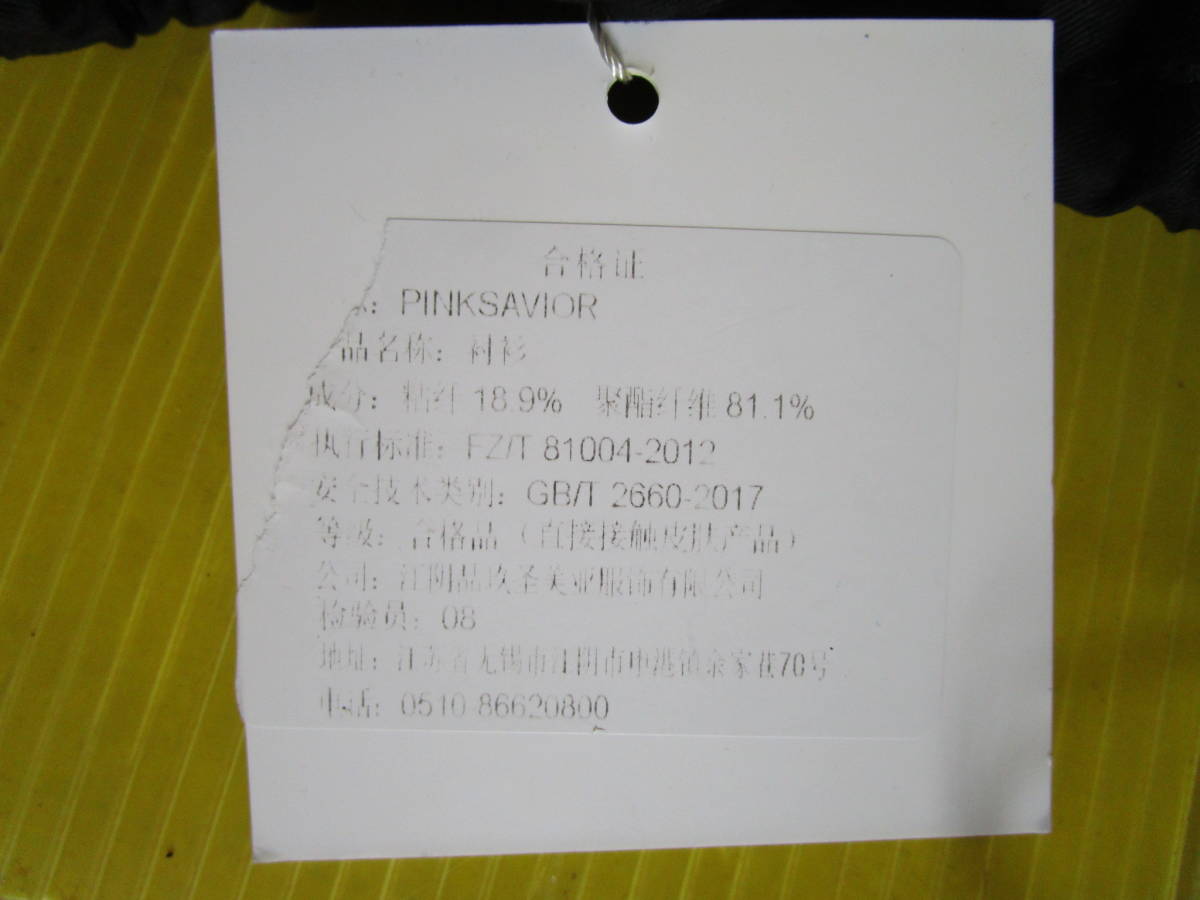 合格证
: PINKSAVIOR
品名称：衬衫
成分：粘纤 18.9% 聚酯纤维 81.1%
执行标准：FZ/T 81004-2012
安全技术类别：GB/T 2660-2017
等级：合格品（直接接触皮肤产品）
公司：江阴品玖圣美亚服饰有限公司
检验员：08
地址：江苏省无锡市江阴市申港镇余家巷70号
电话：0510-86620800